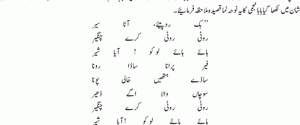 شان میں لکھا گیا بابا نجمی کا یہ نوحہ نما قصیدہ ملاحظہ فرمائیے۔
”اک روپیئے، آٹا سیر
روٹی روٹی کرے چنگیر
ہائے ہائے لوکو! آیا شیر
فیر پرانا ساڈا رونا
ساڈے ہتھیں خالی پونا
سوچاں والا اگے ڈھیر
روٹی روٹی کرے چنگیر
ہائے ہائے لوکو! آیا شیر